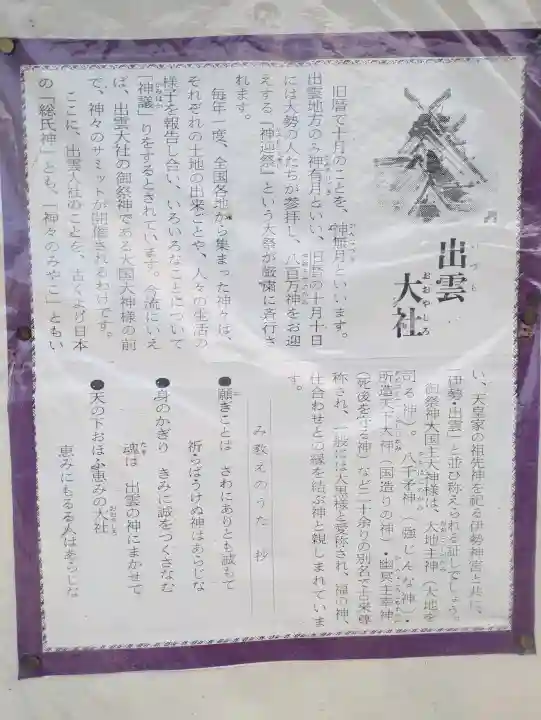 出雲
大社
いづも
おおやしろ
旧暦で十月のことを、神無月といいます。
出雲地方のみ神有月といい、旧暦の十月十日
には大勢の人たちが参拝し、八百万神をお迎
えする「神迎祭」という大祭が厳粛に斉行さ
れます。
毎年一度、全国各地から集まった神々は、
それぞれの土地の出来ごとや、人々の生活の
様子を報告し合い、いろいろなことについて
「神議」りをするとされています。今流にいえ
ば、出雲大社の御祭神である大国大神様の前
で、神々のサミットが開催されるわけです。
ここに、出雲大社のことを、古くより日本
の「総氏神」とも、「神々のみやこ」ともい
い、天皇家の祖先神を祀る伊勢神宮と共に、
「伊勢・出雲」と並び称えられる証しでしょう。
御祭神大国主大神様は、大地主神（大地を
司る神）。八千矛神（強じんな神）・
所造天下大神（国造りの神）・幽冥主宰神
（死後を守る神）など二十余りの別名で古来尊
称され、一般には大黒様と愛称され、福の神、
仕合わせとの縁を結ぶ神と親しまれていま
す。
み教えのうた 抄
●願ぎことは さわにありとも誠もて
祈らばうけぬ神はあらじな
●身のかぎり きみに誠をつくさなむ
魂は 出雲の神にまかせて
●天の下おほふ恵みの大社
恵みにもるる人はあらじな